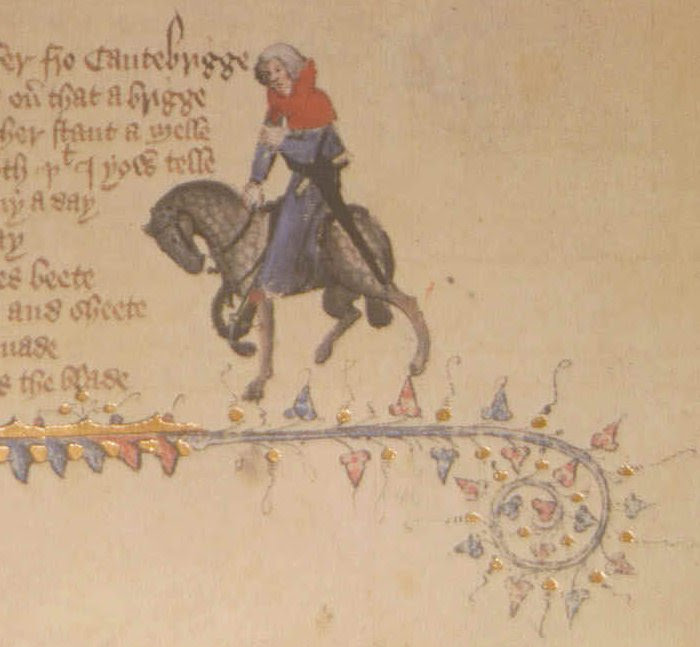 fer fro Cantebrigge
ou̅ that a brigge
ther stant a melle
oth þᵗ I yow telle
ny a day
ay
es beete
and sheete
nade
s the blade